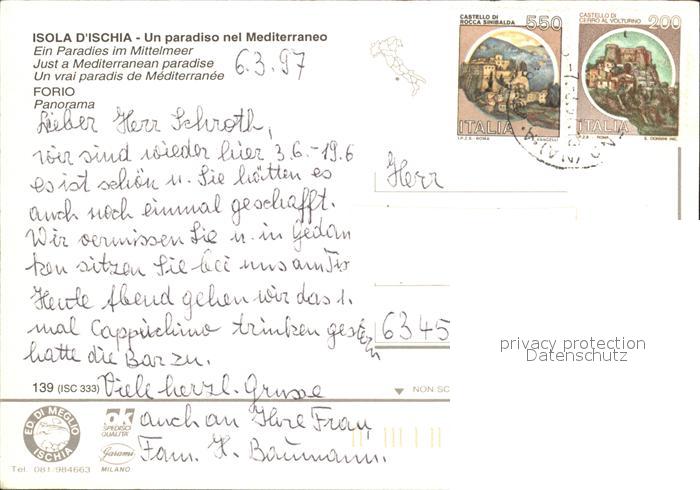 ISOLA D'ISCHIA - Un paradiso nel Mediterraneo
Ein Paradies im Mittelmeer
Just a Mediterranean paradise
Un vrai paradis de Méditerranée
FORIO
Panorama
6.3.97
CASTELLO DI
ROCCA SINIBALDA
550
ITALIA
I.P.Z.S. - ROMA
CASTELLO DI
CERRO AL VOLTURNO
200
ITALIA
I.P.Z.S. - ROMA
Lieber Herr Schroth,
wir sind wieder hier 3.6.-19.6
es ist schön u. Sie hätten es
auch noch einmal geschafft.
Wir vermissen Sie u. in Gedan
ken sitzen Sie bei uns am Tis
Heute Abend gehen wir das 1.
mal Cappuchino trinken gestern
hatte die Bar zu.
Viele herzl. Grusse
auch an Ihre Frau,
Fam. H. Baumann.
Herr
6345
privacy protection
Datenschutz
139 (ISC 333)
NON SC
ED. DI MEGLIO
ISCHIA
Tel. 081/984663
ok
SPEDISCI
QUALITÀ
Garami
MILANO